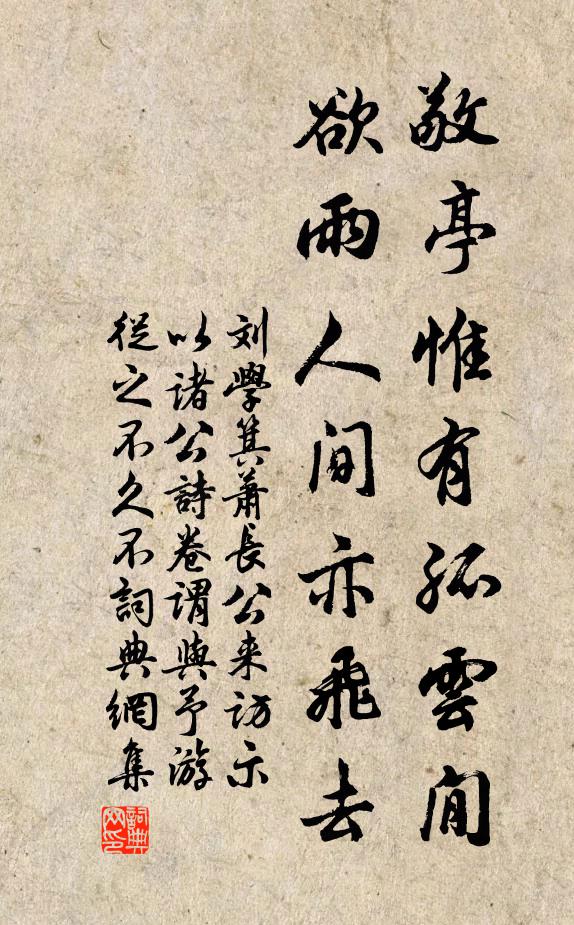 敬亭惟有孤雲閒
欲雨人間亦飛去
刘學箕蕭長公来訪示
以諸公詩卷謂與予游
從之不久不詞典網集
詞典网印